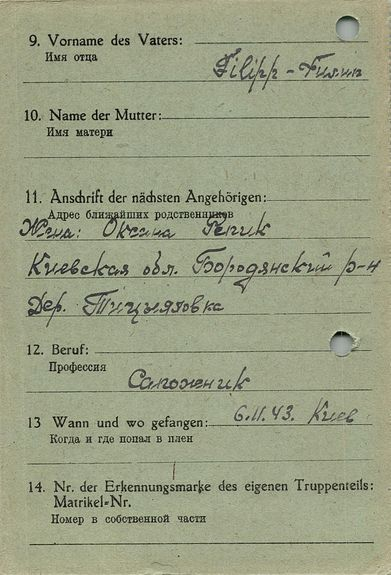 9. Vorname des Vaters:
Имя отца
Filipp - Филип
10. Name der Mutter:
Имя матери
11. Anschrift der nächsten Angehörigen:
Адрес ближайших родственников
Жена: Оксина Репик
Киевская обл. Бородянский р-н
Дер.
12. Beruf:
Профессия
Сапожник
13 Wann und wo gefangen: 6.11.43. Киев
Когда и где попал в плен
14. Nr. der Erkennungsmarke des eigenen Truppenteils:
Matrikel-Nr.
Номер в собственной части